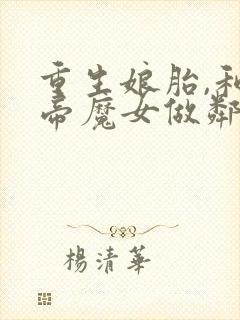 重生娘胎,和
帝魔女做鄰
楊清華